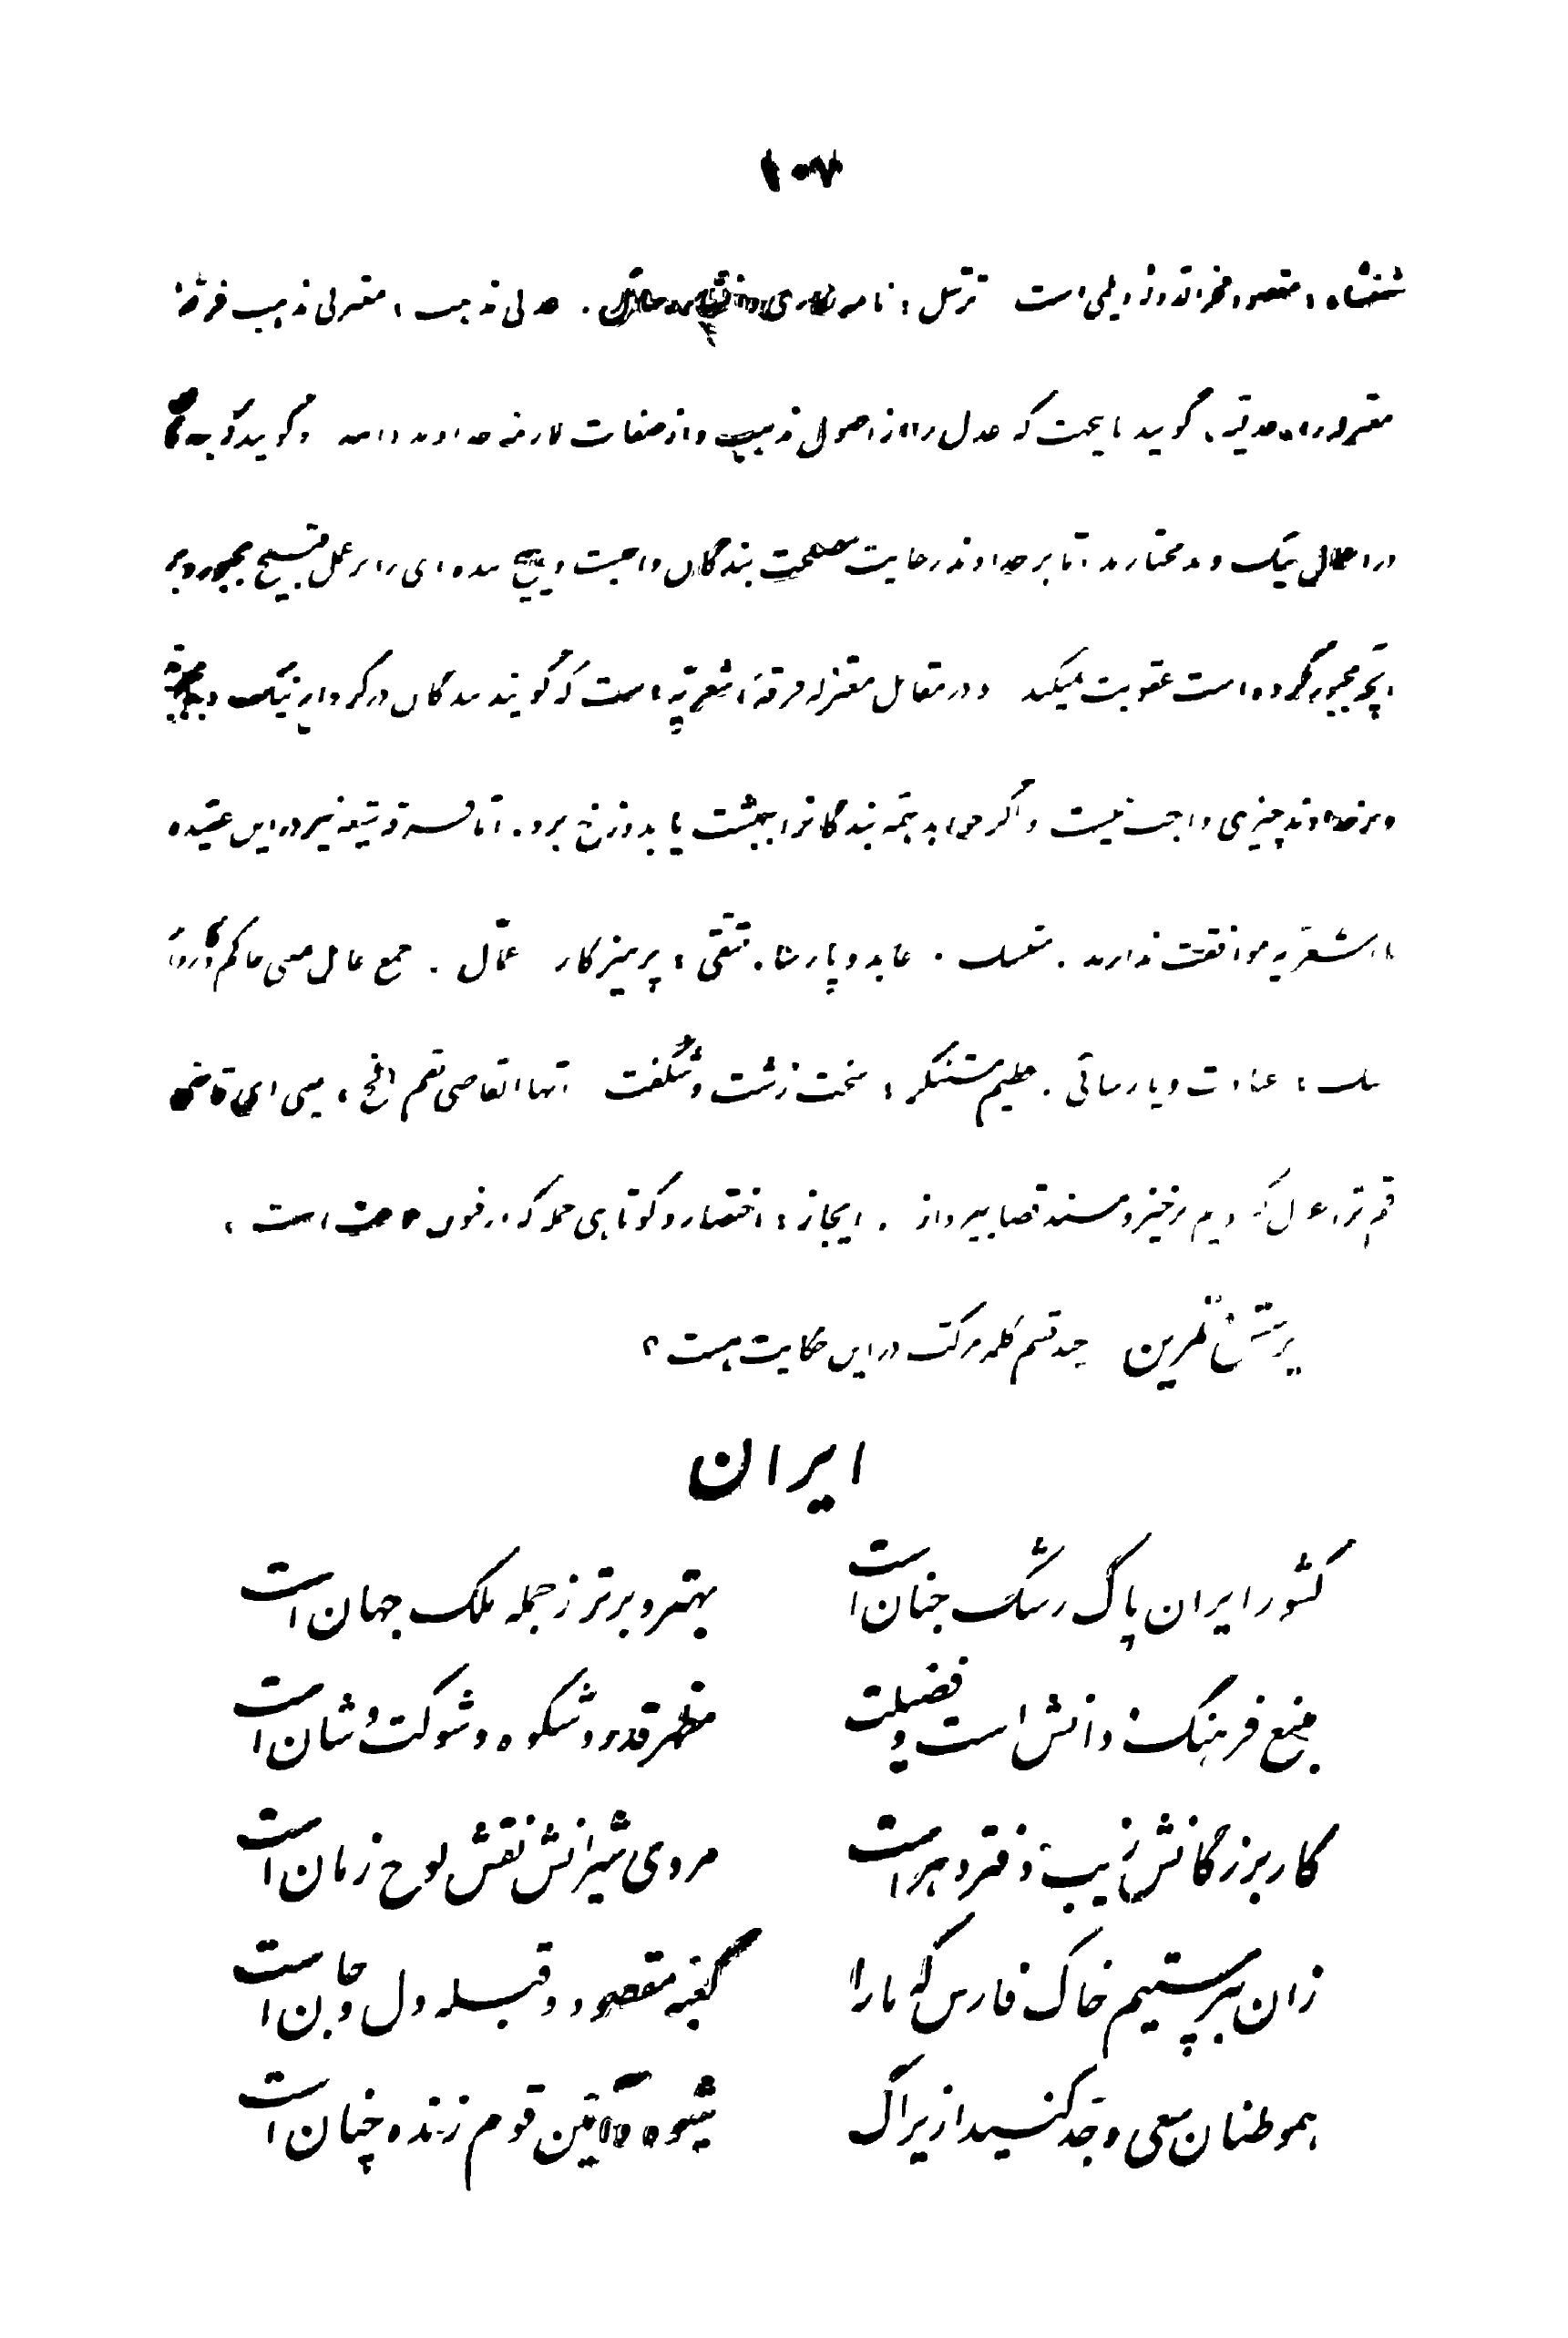 ۱۰۷
شهنشاه ، مقصود فخرالدوله دیلمی است ترسل ؛ نامه نگاری . عدلی مذهب ، معتزلی مذهب فرقهٔ
معتزله را عدلیه گویند بایجهت که عدل را از اصول مذهب و از صفات لازمه خداوند دانند و گویند که بندگان
در اعمال نیک و بد مختارند اما بر خداوند رعایت مصلحت بندگان واجبست و هیچ بنده ای را بر عمل قبیح مجبور و بر
آنچه مجبور کرده است عقوبت نمیکند و در مقابل معتزله فرقهٔ اشعریه است که گویند بندگان در کردار نیک و بد
و بر خداوند چیزی واجب نیست و اگر خواهد همه بندگانرا ببهشت یا بدوزخ برد . اما فرقه شیعه نیز در این عقیده
با اشعریه موافقت ندارند . متنسک . عابد و پارسا . متقی ؛ پرهیزکار عمّال . جمع عامل بمعنی حاکم
نسک ؛ عبادت و پارسائی . عظیم مستنکر ؛ سخت زشت و شگفت ایها القاضی بقم الخ ، یعنی ای قاضی
قم ترا عزل کردیم برخیز و مسند قضا بپرداز . ایجاز ؛ اختصار و کوتاهی جمله که از فنون بلاغت است ،
پرسش و تمرین چند قسم کلمه مرکب در این حکایت هست ؟
ایران
کشور ایران پاک رشک جنان است بهتر و برتر ز جمله ملک جهان است
منبع فرهنگ و دانش است و فضیلت مظهر قدر و شکوه و شوکت و شان است
کار بزرگانش زیب دفتر دهر است مردی شیرانش نقش لوح زمان است
زان بپرستیم خاک فارس که ما را کعبه مقصود و قبله دل و جان است
هموطنان سعی و جد کنید ازیراک شیوه و آئین قوم زنده چنان است